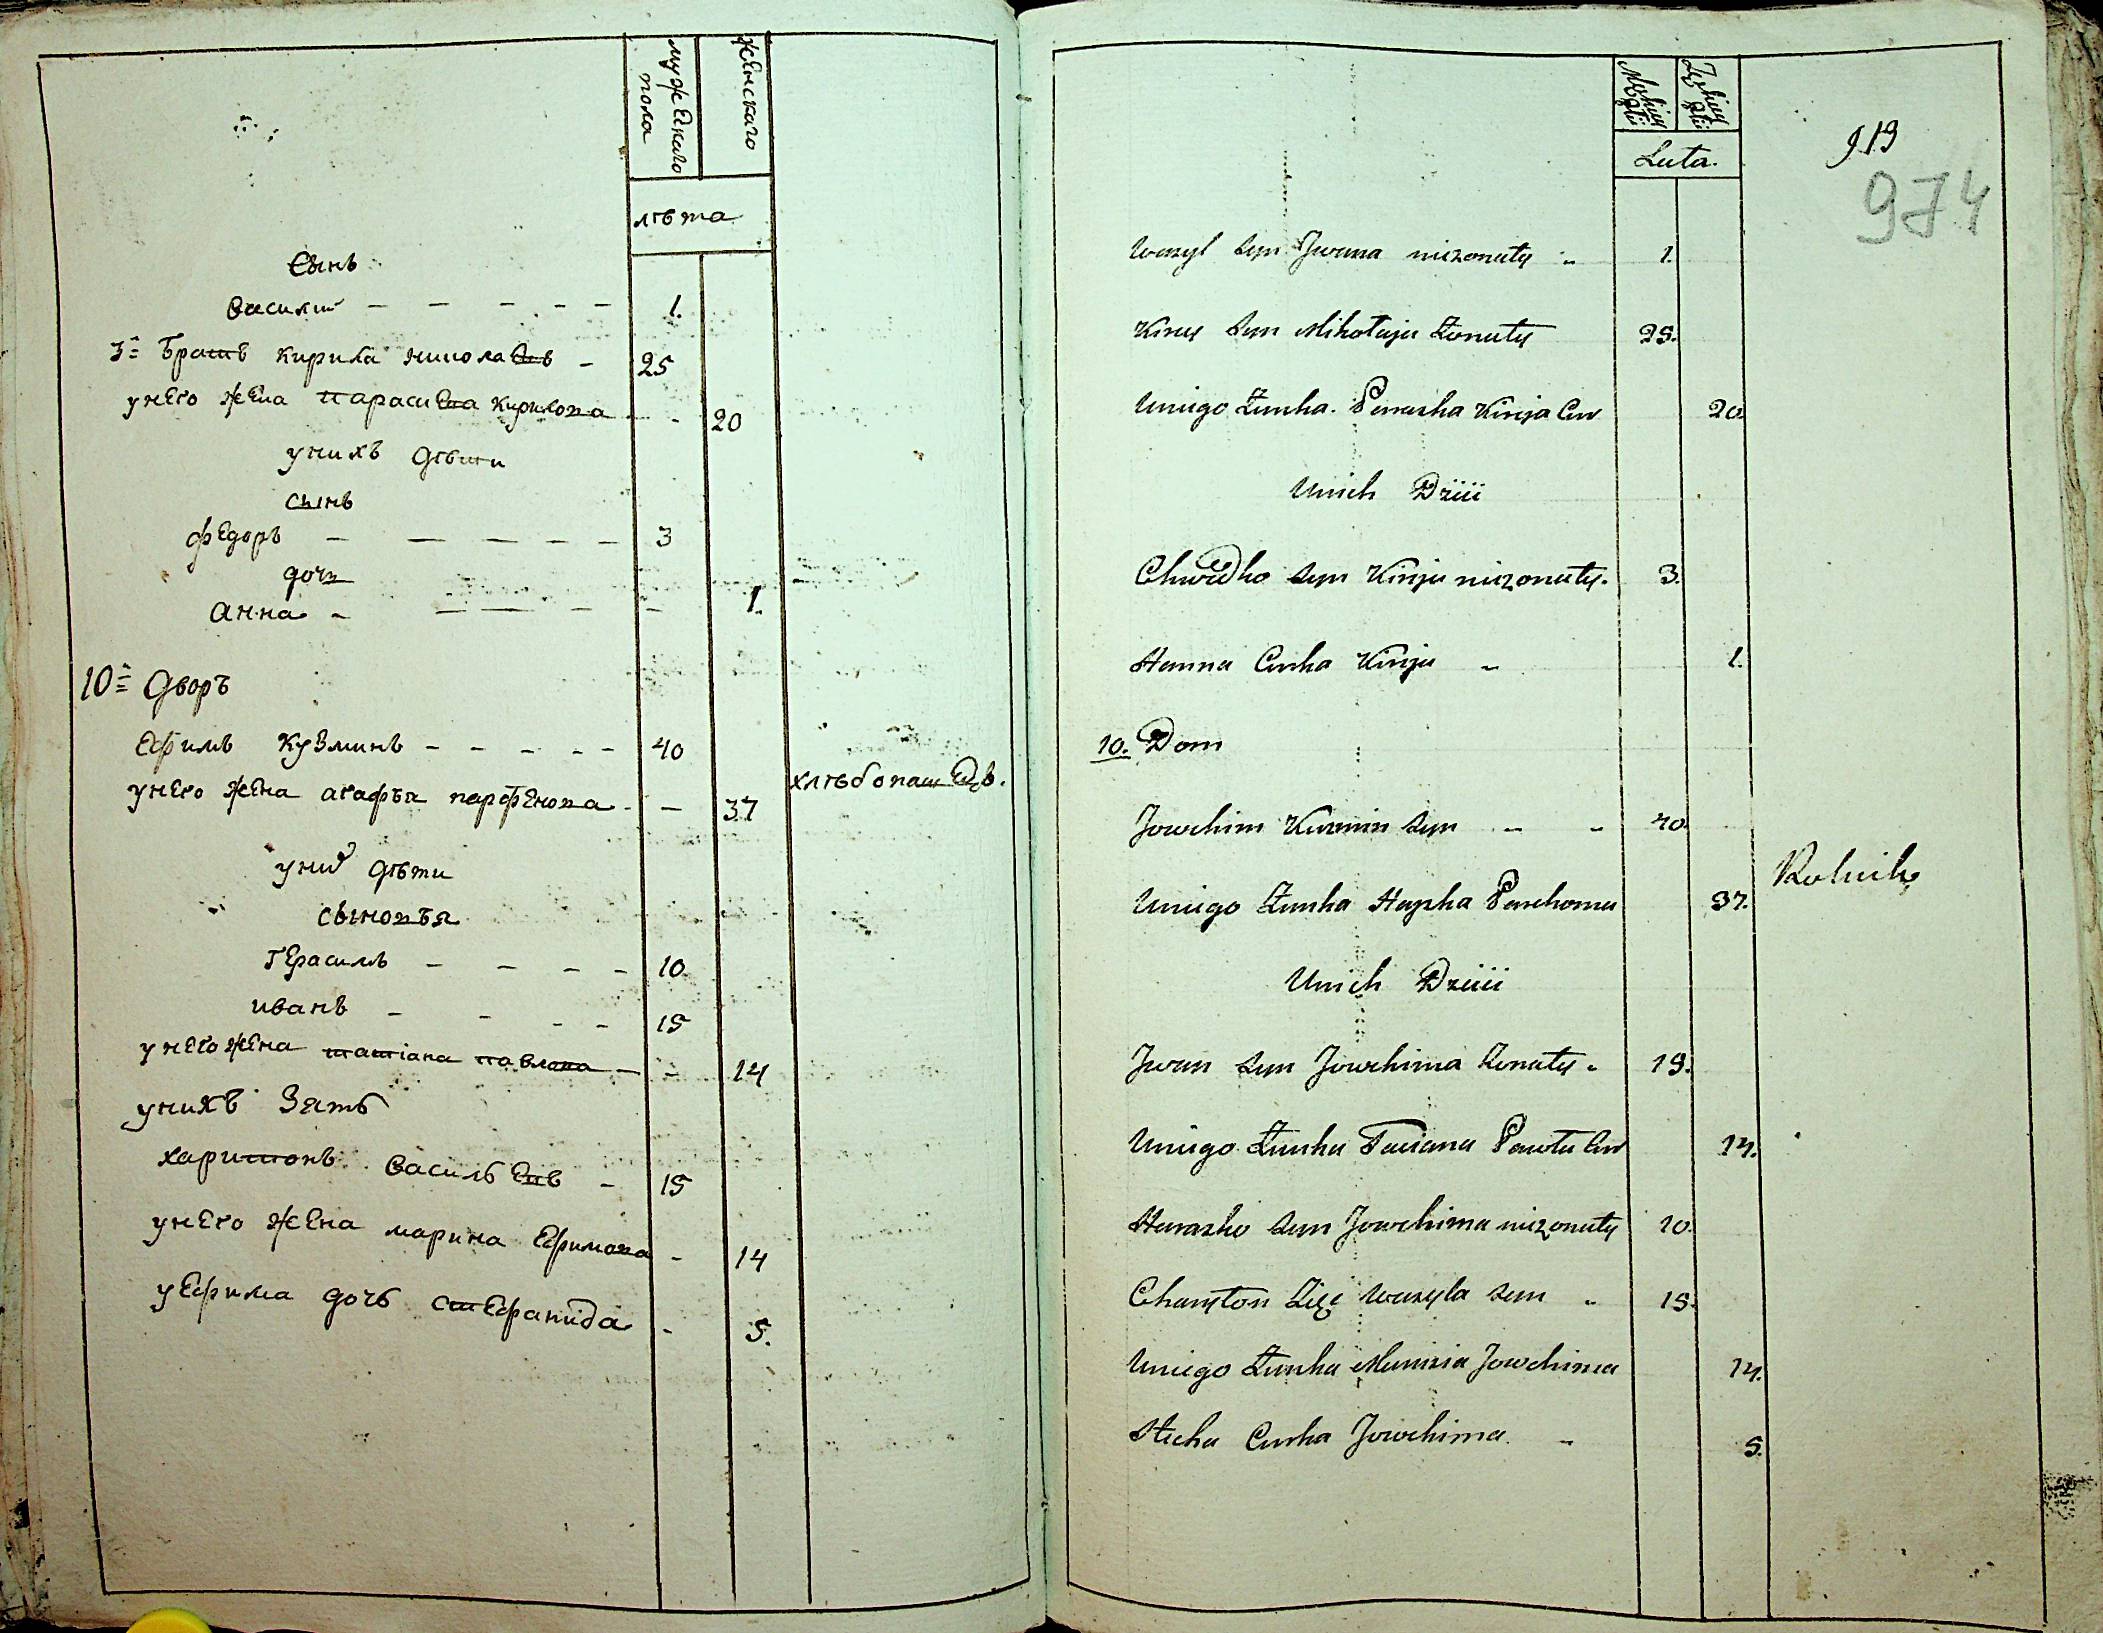 мужескаго пола
женскаго
лѣта
сынъ
василий - - - - - 1.
3й братъ кирила николаевъ - 25
унего жена парасковия кирилова - 20
унихъ дѣти
сынъ
федоръ - - - - - 3
дочь
анна - - - - - 1.
10й дворъ
Ефимъ кузминъ - - - - - 40
унего жена агафья парфенова - - 37
хлѣбопашецъ.
унихъ дѣти
сыновья
Герасимъ - - - - 10
иванъ - - - - 15
унего жена татiана павлова - - 14
унихъ зять
харитонъ васильевъ - 15
унего жена марина Ефимова - 14
уЕфима дочь стефанида - 5.
Męskiey płci
Żęskiey płci
Luta.
919
974
Wasyl syn Jwana niezonaty „ 1.
Kiryj syn Mikołaja Żonaty 25.
Uniego Żunka Paraska Kiryja Cur 20
Unich Dzieii
Chwedko syn Kiryja niezonaty. 3.
Hanna Curka Kiryja „ 1.
10. Dom
Jowchim Kuzmin syn „ „ 40.
Uniego Żunka Hapka Parchoma 37.
Rolnik
Unich Dzieii
Jwan syn Jowchima Żonaty „ 15.
Uniego Żunka Taciana Pawła Cur 14.
Harasko syn Jowchima niezonaty 10.
Charyton Zięc Wasyla syn „ 15.
Uniego Żunka Marisia Jowchima 14.
Stecha Curka Jowchima „ 5.